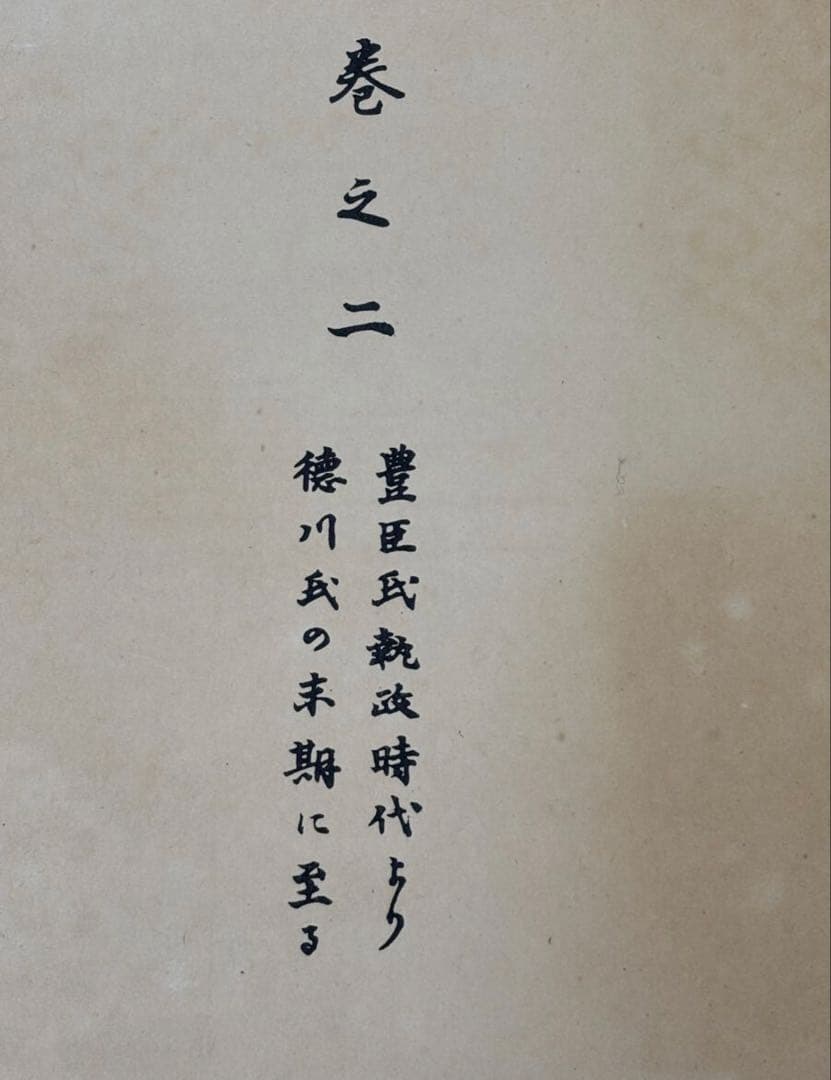 巻之二
豊臣氏執政時代より
徳川氏の末期に至る